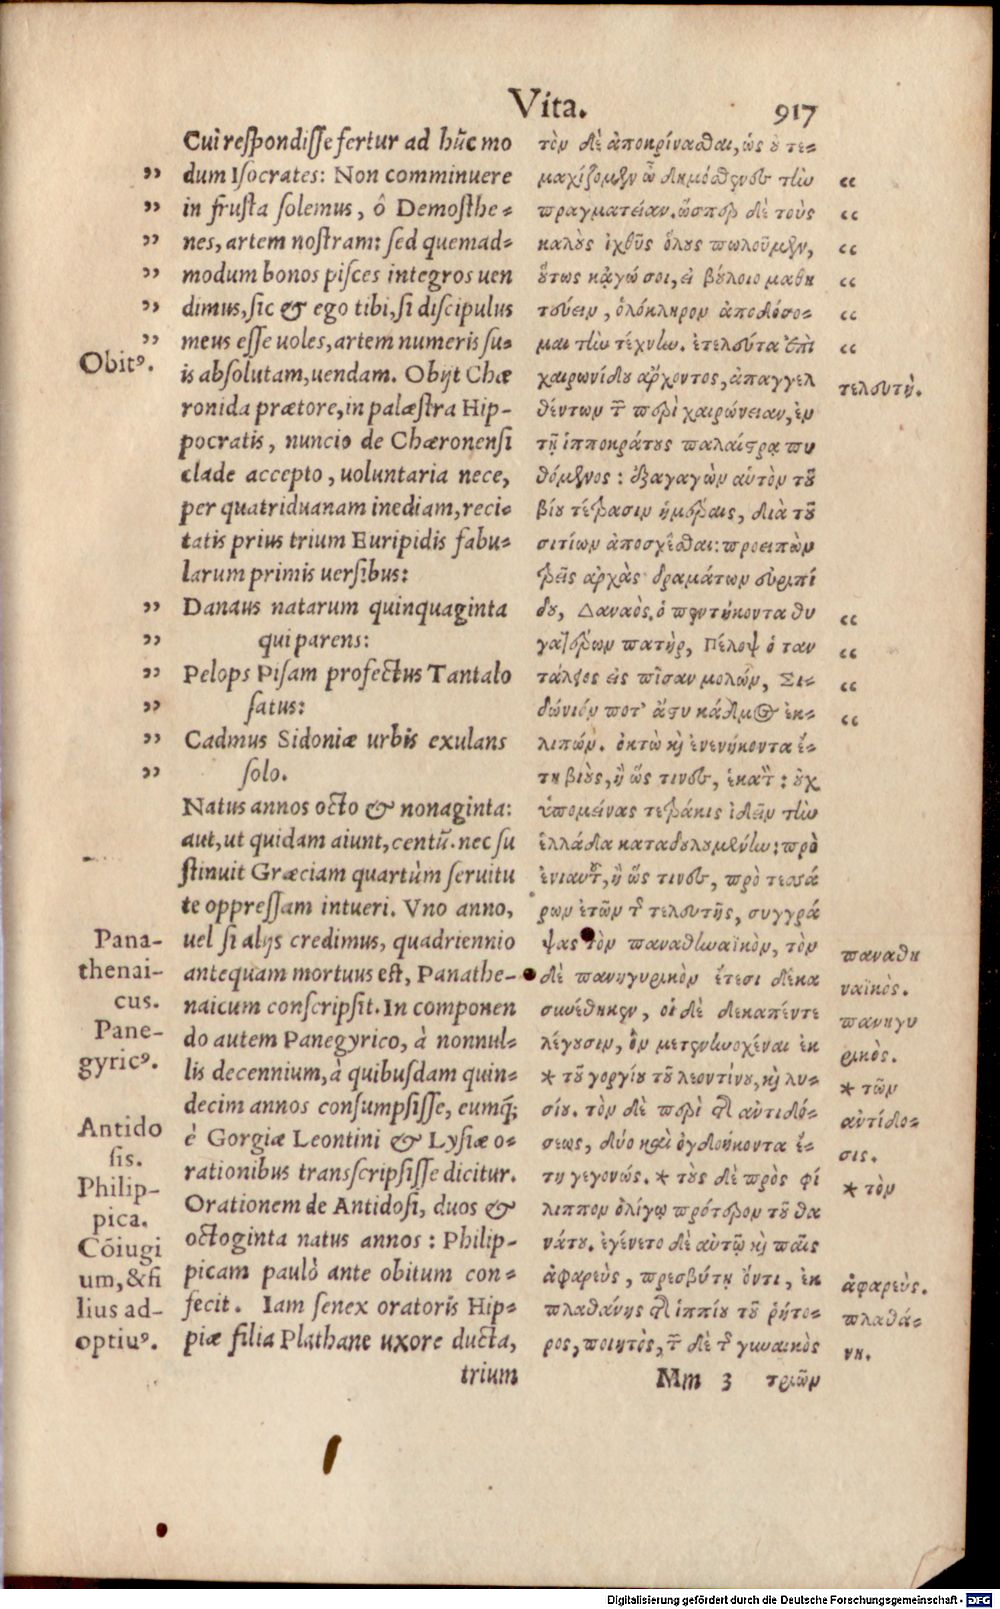 Vita. 917
Cui respondisse fertur ad hūc mo
dum Isocrates: Non comminuere
in frusta solemus, ô Demosthe-
nes, artem nostram: sed quemad-
modum bonos pisces integros uen
dimus, sic & ego tibi, si discipulus
meus esse uoles, artem numeris su-
is absolutam, uendam. Obijt Chæ
ronida prætore, in palæstra Hip-
pocratis, nuncio de Chæronensi
clade accepto, uoluntaria nece,
per quatriduanam inediam, reci-
tatis prius trium Euripidis fabu-
larum primis uersibus:
Danaus natarum quinquaginta
qui parens:
Pelops Pisam profectus Tantalo
satus:
Cadmus Sidoniæ urbis exulans
solo.
Natus annos octo & nonaginta:
aut, ut quidam aiunt, centū. nec su
stinuit Græciam quartùm seruitu
te oppressam intueri. Vno anno,
uel si alijs credimus, quadriennio
antequam mortuus est, Panathe-
naicum conscripsit. In componen
do autem Panegyrico, à nonnul-
lis decennium, à quibusdam quin-
decim annos consumpsisse, eumq́;
è Gorgiæ Leontini & Lysiæ o-
rationibus transcripsisse dicitur.
Orationem de Antidosi, duos &
octoginta natus annos: Philip-
picam paulò ante obitum con-
fecit. Iam senex oratoris Hip-
piæ filia Plathane uxore ducta,
trium
Obitꝰ.
Pana-
thenai-
cus.
Pane-
gyricꝰ.
Antido
sis.
Philip-
pica.
Cōiugi
um, & fi
lius ad-
optiuꝰ.
τὸν δὲ ἀποκρίνασθαι, ὡς ȣ τε-
μαχίζομεν ὦ δημόσθενες τὴν
πραγματείαν. ὥσπερ δὲ τοὺς
καλȣ̀ς ἰχθῦς ὅλους πωλοῦμεν,
ȣ̔́τως κᾀγώ σοι, εἰ βȣ́λοιο μαθη
τεύειν, ὁλόκληρον ἀποδώσο-
μαι τὴν τέχνην. ἐτελεύτα ἐπὶ
χαιρωνίδου ἄρχοντος, ἀπαγγελ
θέντων τῶν περὶ χαιρώνειαν, ἐν
τῇ ἱπποκράτους παλαίστρᾳ πυ
θόμενος: ἐξαγαγὼν αὑτὸν τοῦ
βίȣ τέτρασιν ἡμέραις, διὰ τοῦ
σιτίων ἀποσχέσθαι: προειπὼν
τρεῖς ἀρχὰς δραμάτων εὐριπί
δου, Δαναὸς. ὁ πεντήκοντα θυ
γατέρων πατὴρ, Πέλοψ ὁ ταν
τάλειος εἰς πῖσαν μολών, Σι-
δώνιόν ποτ' ἄστυ κάδμος ἐκ-
λιπών. ὀκτὼ καὶ ἐνενήκοντα ἔ-
τη βιοὺς, ἢ ὥς τινες, ἑκατὸν: ȣ̓χ
ὑπομείνας τετράκις ἰδεῖν τὴν
ἑλλάδα καταδουλουμένην: πρὸ
ἐνιαυτοῦ, ἢ ὥς τινες, πρὸ τεσσά
ρων ἐτῶν τῆς τελευτῆς, συγγρά
ψας τὸν παναθηναϊκὸν, τὸν
δὲ πανηγυρικὸν ἔτεσι δέκα
συνέθηκεν, οἱ δὲ δεκαπέντε
λέγουσιν, ὃν μετενηνοχέναι ἐκ
* τοῦ γοργίȣ τοῦ λεοντίνȣ, καὶ λυ-
σίȣ. τὸν δὲ περὶ τῆς ἀντιδό-
σεως, δύο καὶ ὀγδοήκοντα ἔ-
τη γεγονώς. * τȣ̀ς δὲ πρὸς φί
λιππον ὀλίγῳ πρότερον τοῦ θα
νάτȣ. ἐγένετο δὲ αὐτῷ καὶ παῖς
ἀφαρεὺς, πρεσβύτῃ ὄντι, ἐκ
πλαθάνης τῆς ἱππίȣ τοῦ ῥήτο-
ρος, ποιητὸς, τῶν δὲ τῆς γυναικὸς
Mm 3 τριῶν
τελευτή.
παναθη
ναϊκὸς.
πανηγυ
ρικὸς.
* τῶν
ἀντίδο-
σις.
* τὸν
ἀφαρεὺς.
πλαθά-
νη.
Digitalisierung gefördert durch die Deutsche Forschungsgemeinschaft - DFG